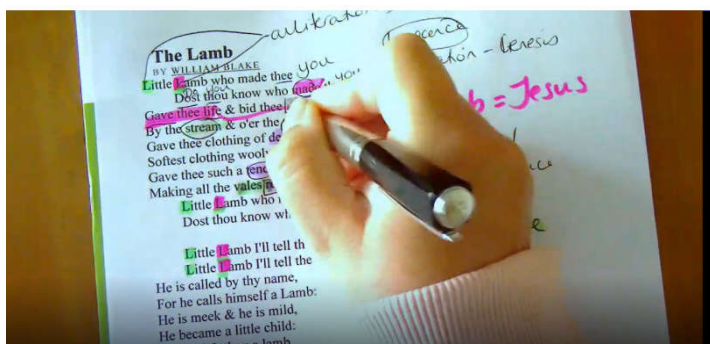 alliteration
The Lamb
BY WILLIAM BLAKE
you
Genesis
Little Lamb who made thee
Do you
you
Dost thou know who made
= Jesus
Gave thee life & bid thee
By the stream & o'er the
Gave thee clothing of
Softest clothing
Gave thee such a
Making all the vales
Little Lamb who
Dost thou know
Little Lamb I'll tell
Little Lamb I'll tell the
He is called by thy name,
For he calls himself a Lamb:
He is meek & he is mild,
He became a little child:
lamb